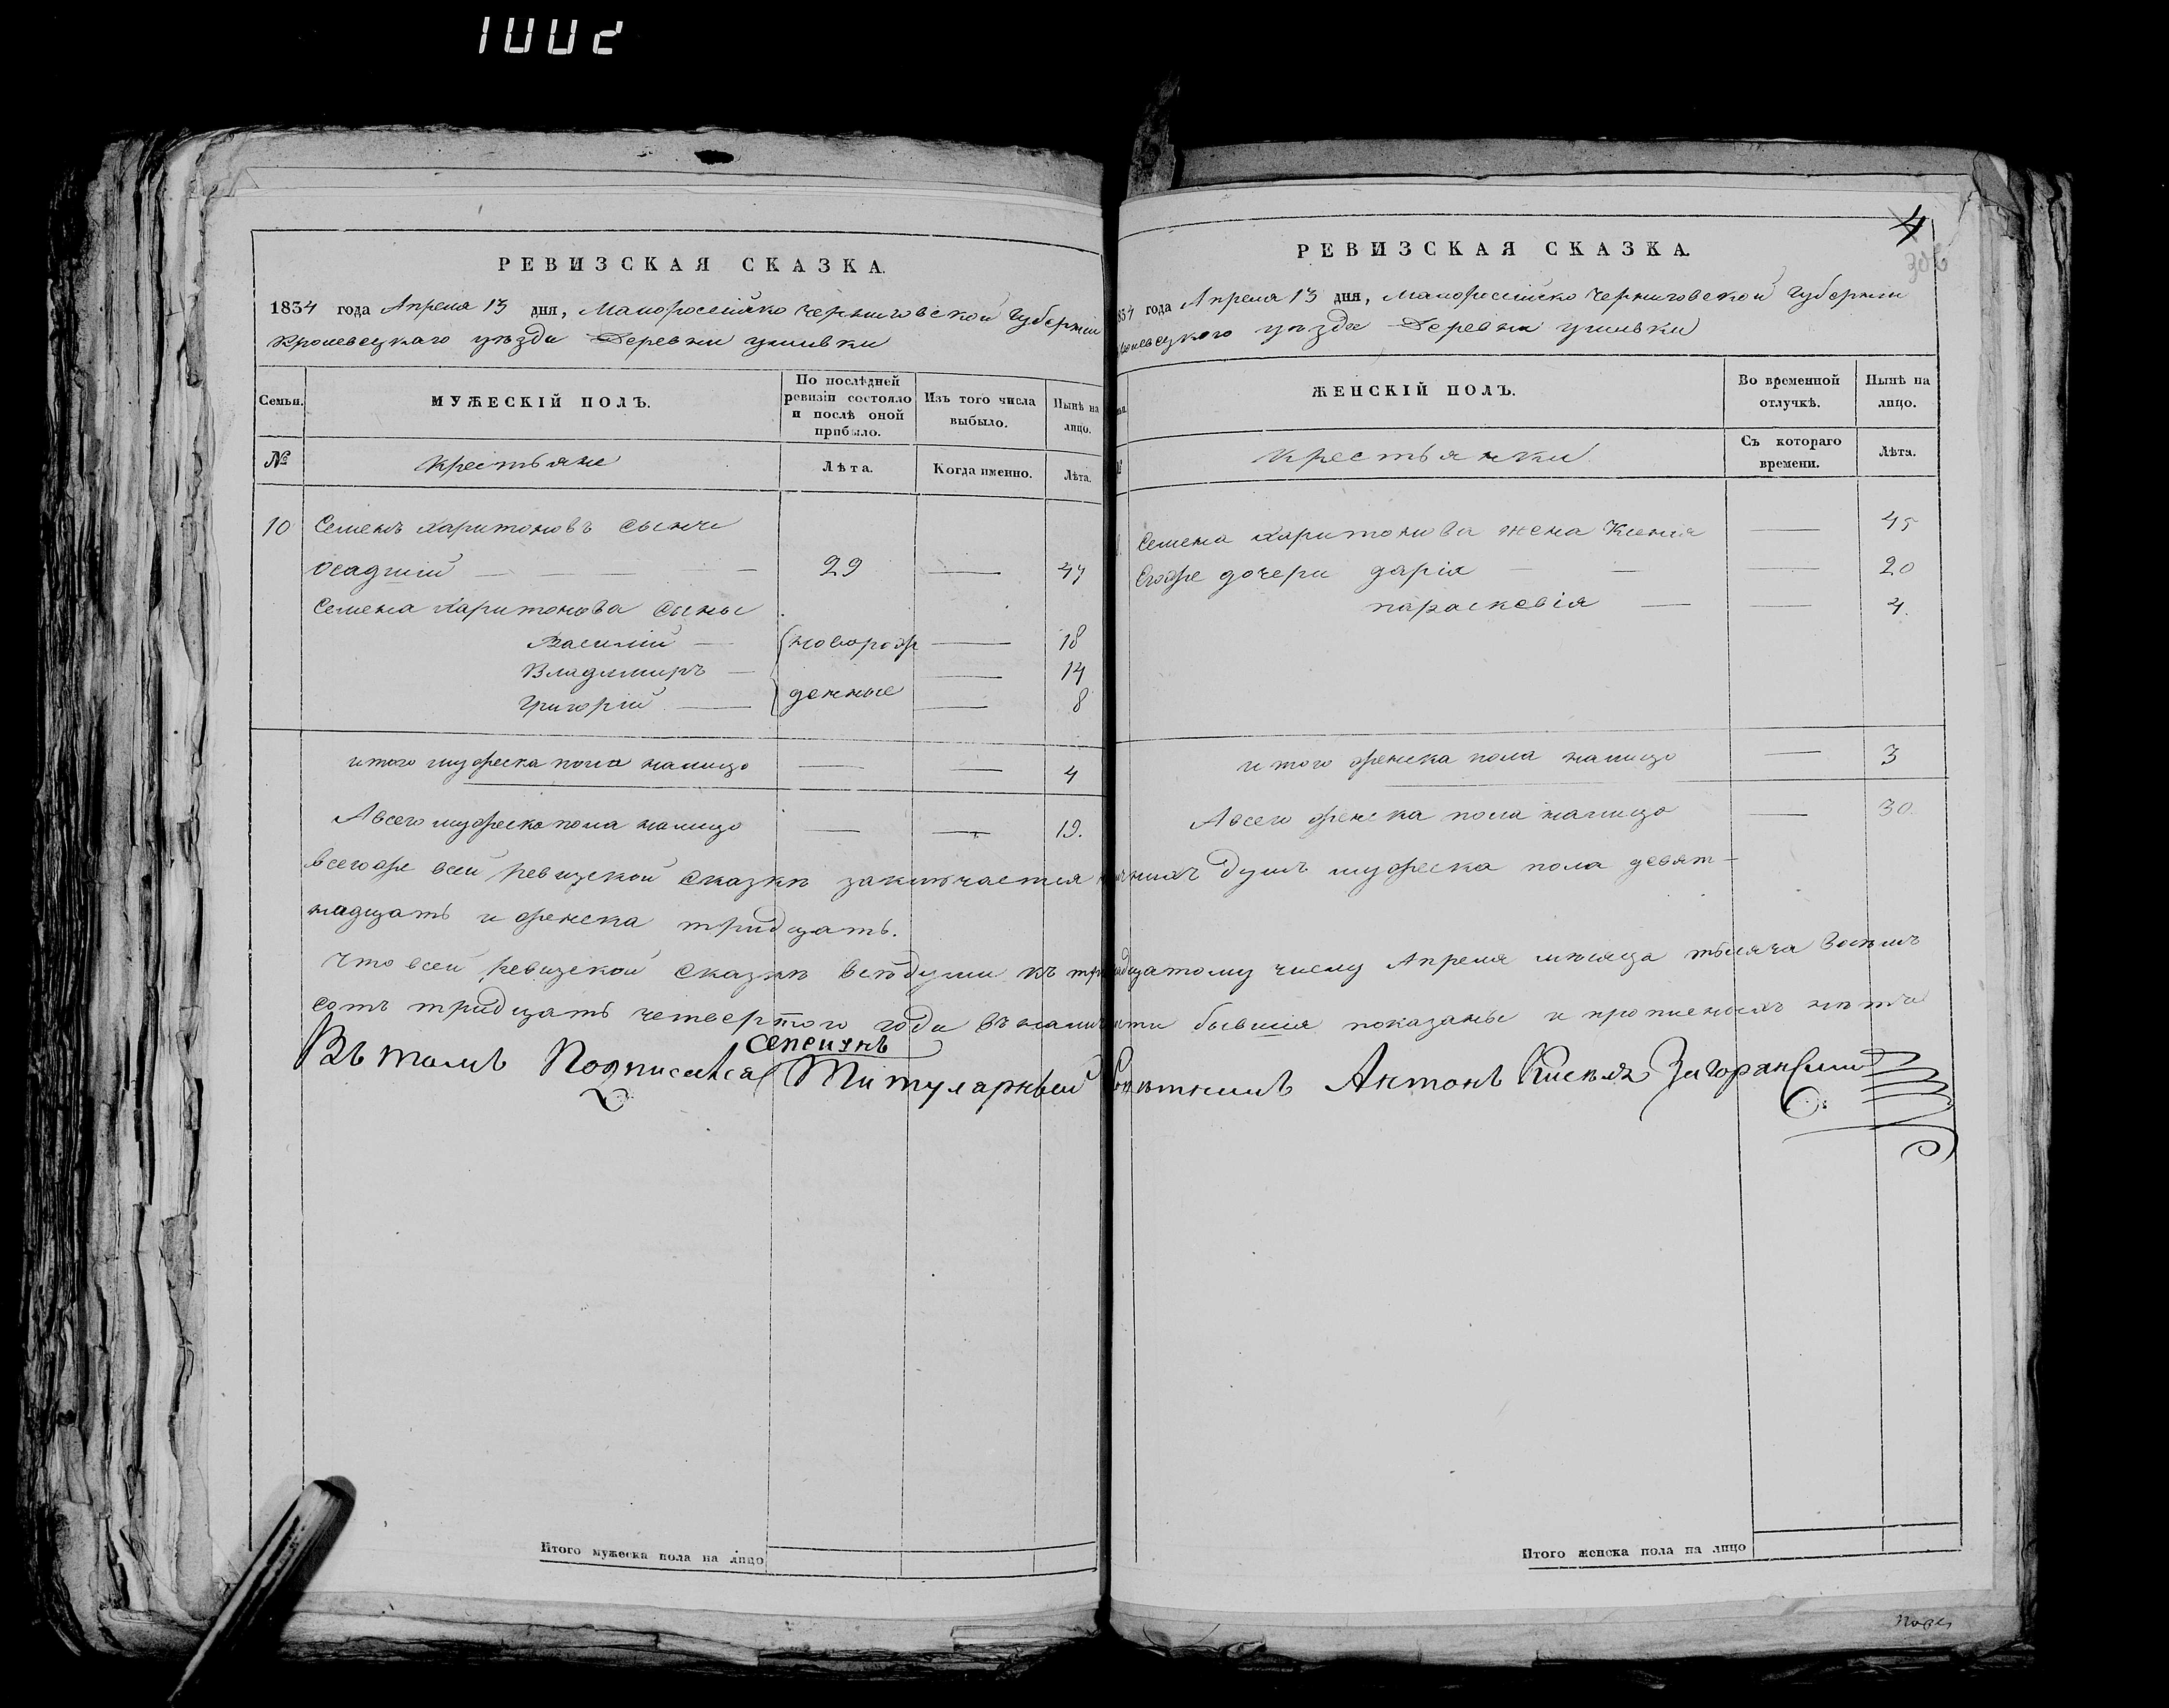 1002
РЕВИЗСКАЯ СКАЗКА.
1834 года Апреля 13 дня, Малоросейско Черниговской Губернии
Кролевецкаго уезда Деревни
Семьи. МУЖЕСКІЙ ПОЛЪ. По послѣдней ревизіи состояло и послѣ оной прибыло. Изъ того числа выбыло. Нынѣ на лицо.
№ Крестьяне Лѣта. Когда именно. Лѣта.
10 Семенъ Харитоновъ сынъ
Осадчий — 29 —
Семена Харитонова сыны
Василій — новорож — 18
Владимиръ — — 14
Григорій — денные — 8
итого мужеска пола налицо — — 4
А всего мужеска пола налицо — — 19.
4
РЕВИЗСКАЯ СКАЗКА
года Апреля 13 дня, Малоросейско Черниговской Губернии
уезда Деревни
ЖЕНСКІЙ ПОЛЪ. Во временной отлучкѣ. Нынѣ на лицо.
Крестьянки Съ котораго времени. Лѣта.
Семена Харитонова жена Ксения — 45
Егоже дочери дарія — — 20
параскевія — — 4.
итого женска пола налицо — 3
А всего женска пола налицо — 30
всегоже всей ревизской сказки заключается душъ мужеска пола девят-
надцать и женска тридцать.
Что всей ревизской сказки все души къ числу Апреля месяца тысяча восемь
сотъ тридцать четвертого года въ бывшия показаны и прописныхъ нетъ
сепеинъ
Въ томъ Подписался Титулярный Антонъ
Итого мужеска пола на лицо
Итого женска пола на лицо